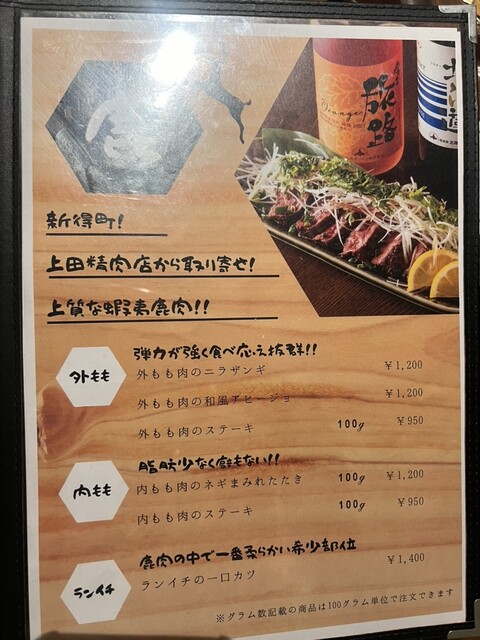 旅路
Orange
新得町!
上田精肉店から取り寄せ!
上質な蝦夷鹿肉!!
外もも
弾力が強く食べ応え抜群!!
外もも肉のニラザンギ ¥1,200
外もも肉の和風アヒージョ ¥1,200
外もも肉のステーキ 100g ¥950
内もも
脂肪少なく癖もない!!
内もも肉のネギまみれたたき 100g ¥1,200
内もも肉のステーキ 100g ¥950
ランイチ
鹿肉の中で一番柔らかい希少部位
ランイチの一口カツ ¥1,400
※グラム数記載の商品は100グラム単位で注文できます